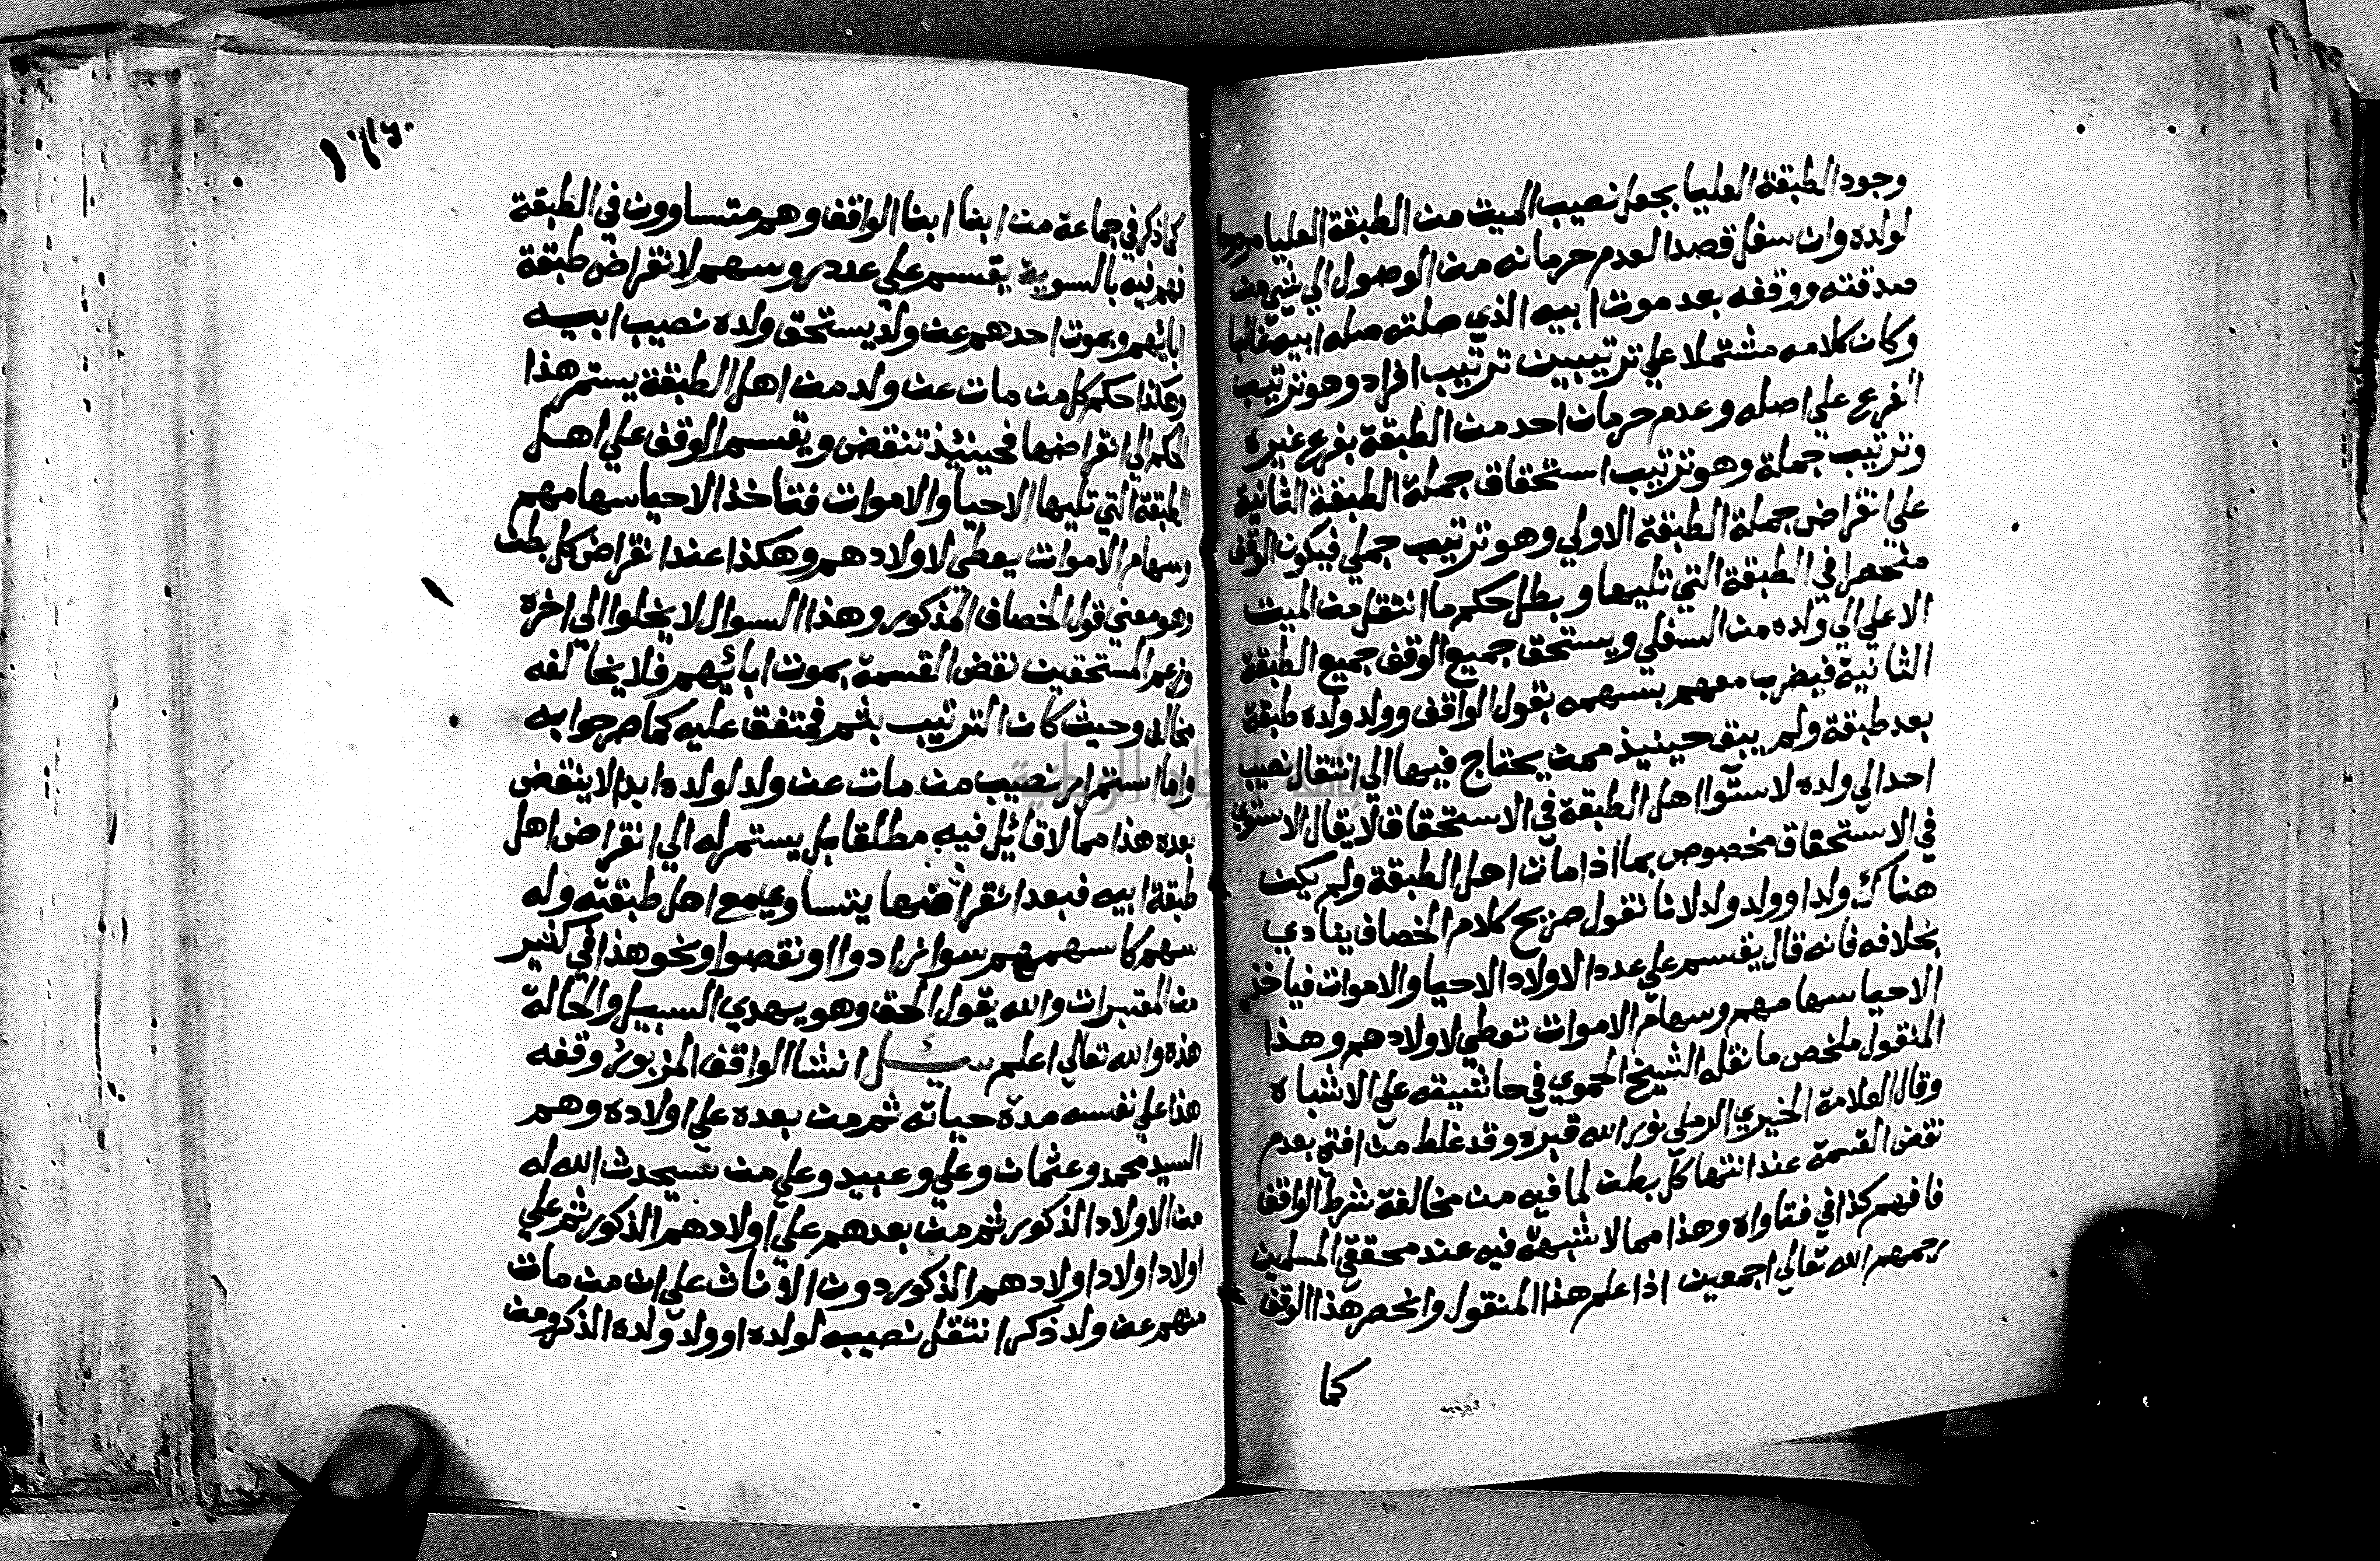 وجود الطبقة العليا بجعل نصيب الميت من الطبقة العليا مردودا
لولده وان سفل قصدا لعدم حرمانه من الوصول الي شي من
صدقته ووقفه بعد موت ابيه الذي صلته صله ابيه غالبا
وكان كلامه مشتملا علي ترتيبين ترتيب افراد وهو ترتيب
الفرع علي اصله وعدم حرمان احد من الطبقة بفرع غيره
وترتيب جملة وهو ترتيب استحقاق جملة الطبقة الثانية
علي انقراض جملة الطبقة الاولي وهو ترتيب جملي فيكون الوقف
منحصرا في الطبقة التي تليها وبطل حكم ما انتقل من الميت
الاعلي الي ولده من السفلي ويستحق جميع الوقف جميع الطبقة
الثانية فيضرب معهم بسهمه بقول الواقف وولد ولده طبقة
بعد طبقة ولم يبق حينيذ ممن يحتاج فيها الي انتقال نصيب
احد الي ولده لاستوا اهل الطبقة في الاستحقاق لا يقال الاستوي
في الاستحقاق مخصوص بما اذا مات اهل الطبقة ولم يكن
هناك ولد او ولد ولد لانا نقول صريح كلام الخصاف ينادي
بخلافه فانه قال يقسم علي عدد الاولاد الاحيا والاموات فياخذ
الاحيا سهامهم وسهام الاموات تعطي لاولادهم وهذا
المنقول ملخص ما نقله الشيخ الحموي في حاشيته علي الاشباه
وقال العلامة الخيري الرملي نور الله قبره وقد غلط من افتي بعدم
نقض القسمة عند انتها كل بطن لما فيه من مخالفة شرط الواقف
فافهم كذا في فتاواه وهذا مما لا شبهة فيه عند محققي المسلمين
رحمهم الله تعالي اجمعين اذا علم هذا المنقول وانحصر هذا الوقف
كما
كما ذكر في جماعة من ابنا ابنا الواقف وهم متساوون في الطبقة
فهم فيه بالسوية يقسم علي عدد روسهم لانقراض طبقة
ابايهم وبموت احدهم عن ولد يستحق ولده نصيب ابيه
وهكذا حكم كل من مات عن ولد من اهل الطبقة يستمر هذا
الحكم الي انقراضها فحينئذ تنقض ويقسم الوقف علي اهل
الطبقة التي تليها الاحيا والاموات فتاخذ الاحيا سهامهم
وسهام الاموات يعطي لاولادهم وهكذا عند انقراض كل بطن
وهو معني قول الخصاف المذكور وهذا السوال لا يخلوا الي اخره
وزعم المستحقين نقض القسمة بموت ابائهم فلا يخالفه
مخالف وحيث كان الترتيب بثم فمتفق عليه كما مر جوابه
واما استمرار نصيب من مات عن ولد لولده ابدا لا ينقض
بعده هذا مما لا قائل فيه مطلقا بل يستمر له الي انقراض اهل
طبقة ابيه فبعد انقراضها يتساوي مع اهل طبقته وله
سهم كاسهمهم سوا زادوا او نقصوا ونحو هذا في كثير
من المعتبرات والله يقول الحق وهو يهدي السبيل والحالة
هذه والله تعالي اعلم سئل انشا الواقف المزبور وقفه
هذا علي نفسه مدة حياته ثم من بعده علي اولاده وهم
السيد محمد وعثمان وعلي وعبيد وعلي من سيحدث الله له
من الاولاد الذكور ثم من بعدهم علي اولادهم الذكور ثم علي
اولاد اولادهم الذكور دون الاناث علي ان من مات
منهم عن ولد ذكر انتقل نصيبه لولده او ولد ولده الذكر ومن